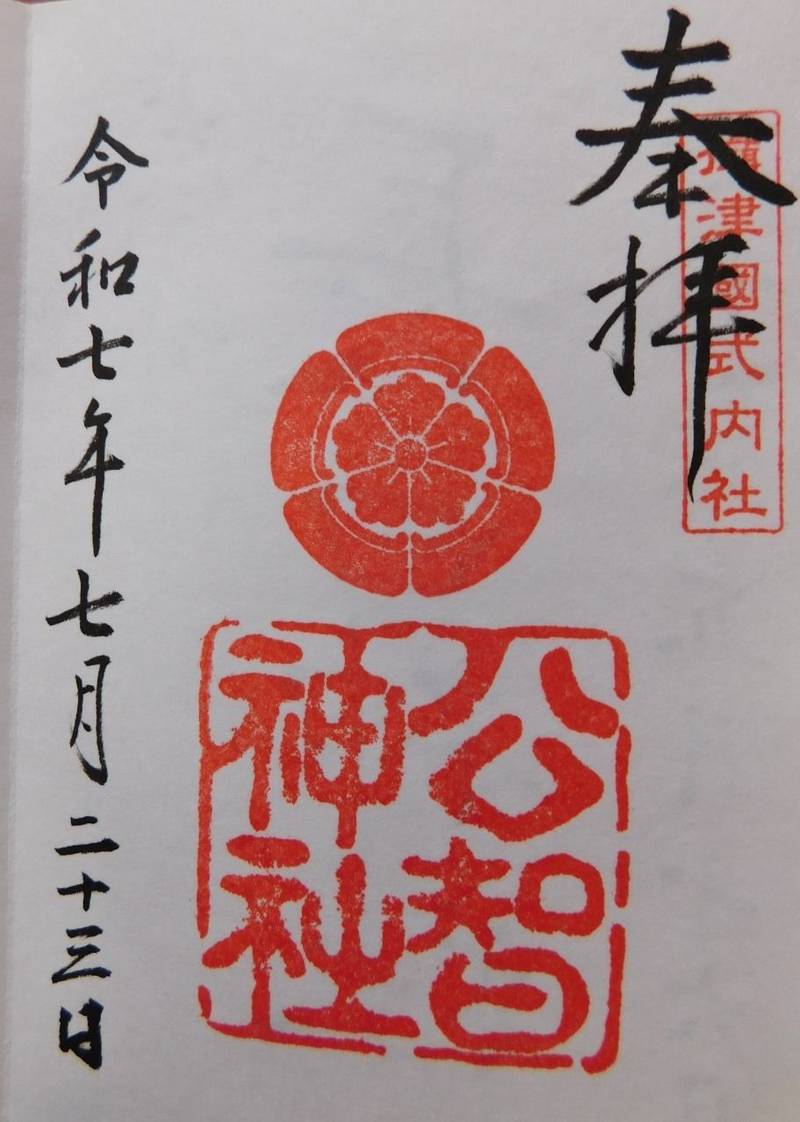 奉拝
攝津國式内社
公智神社
令和七年七月二十三日